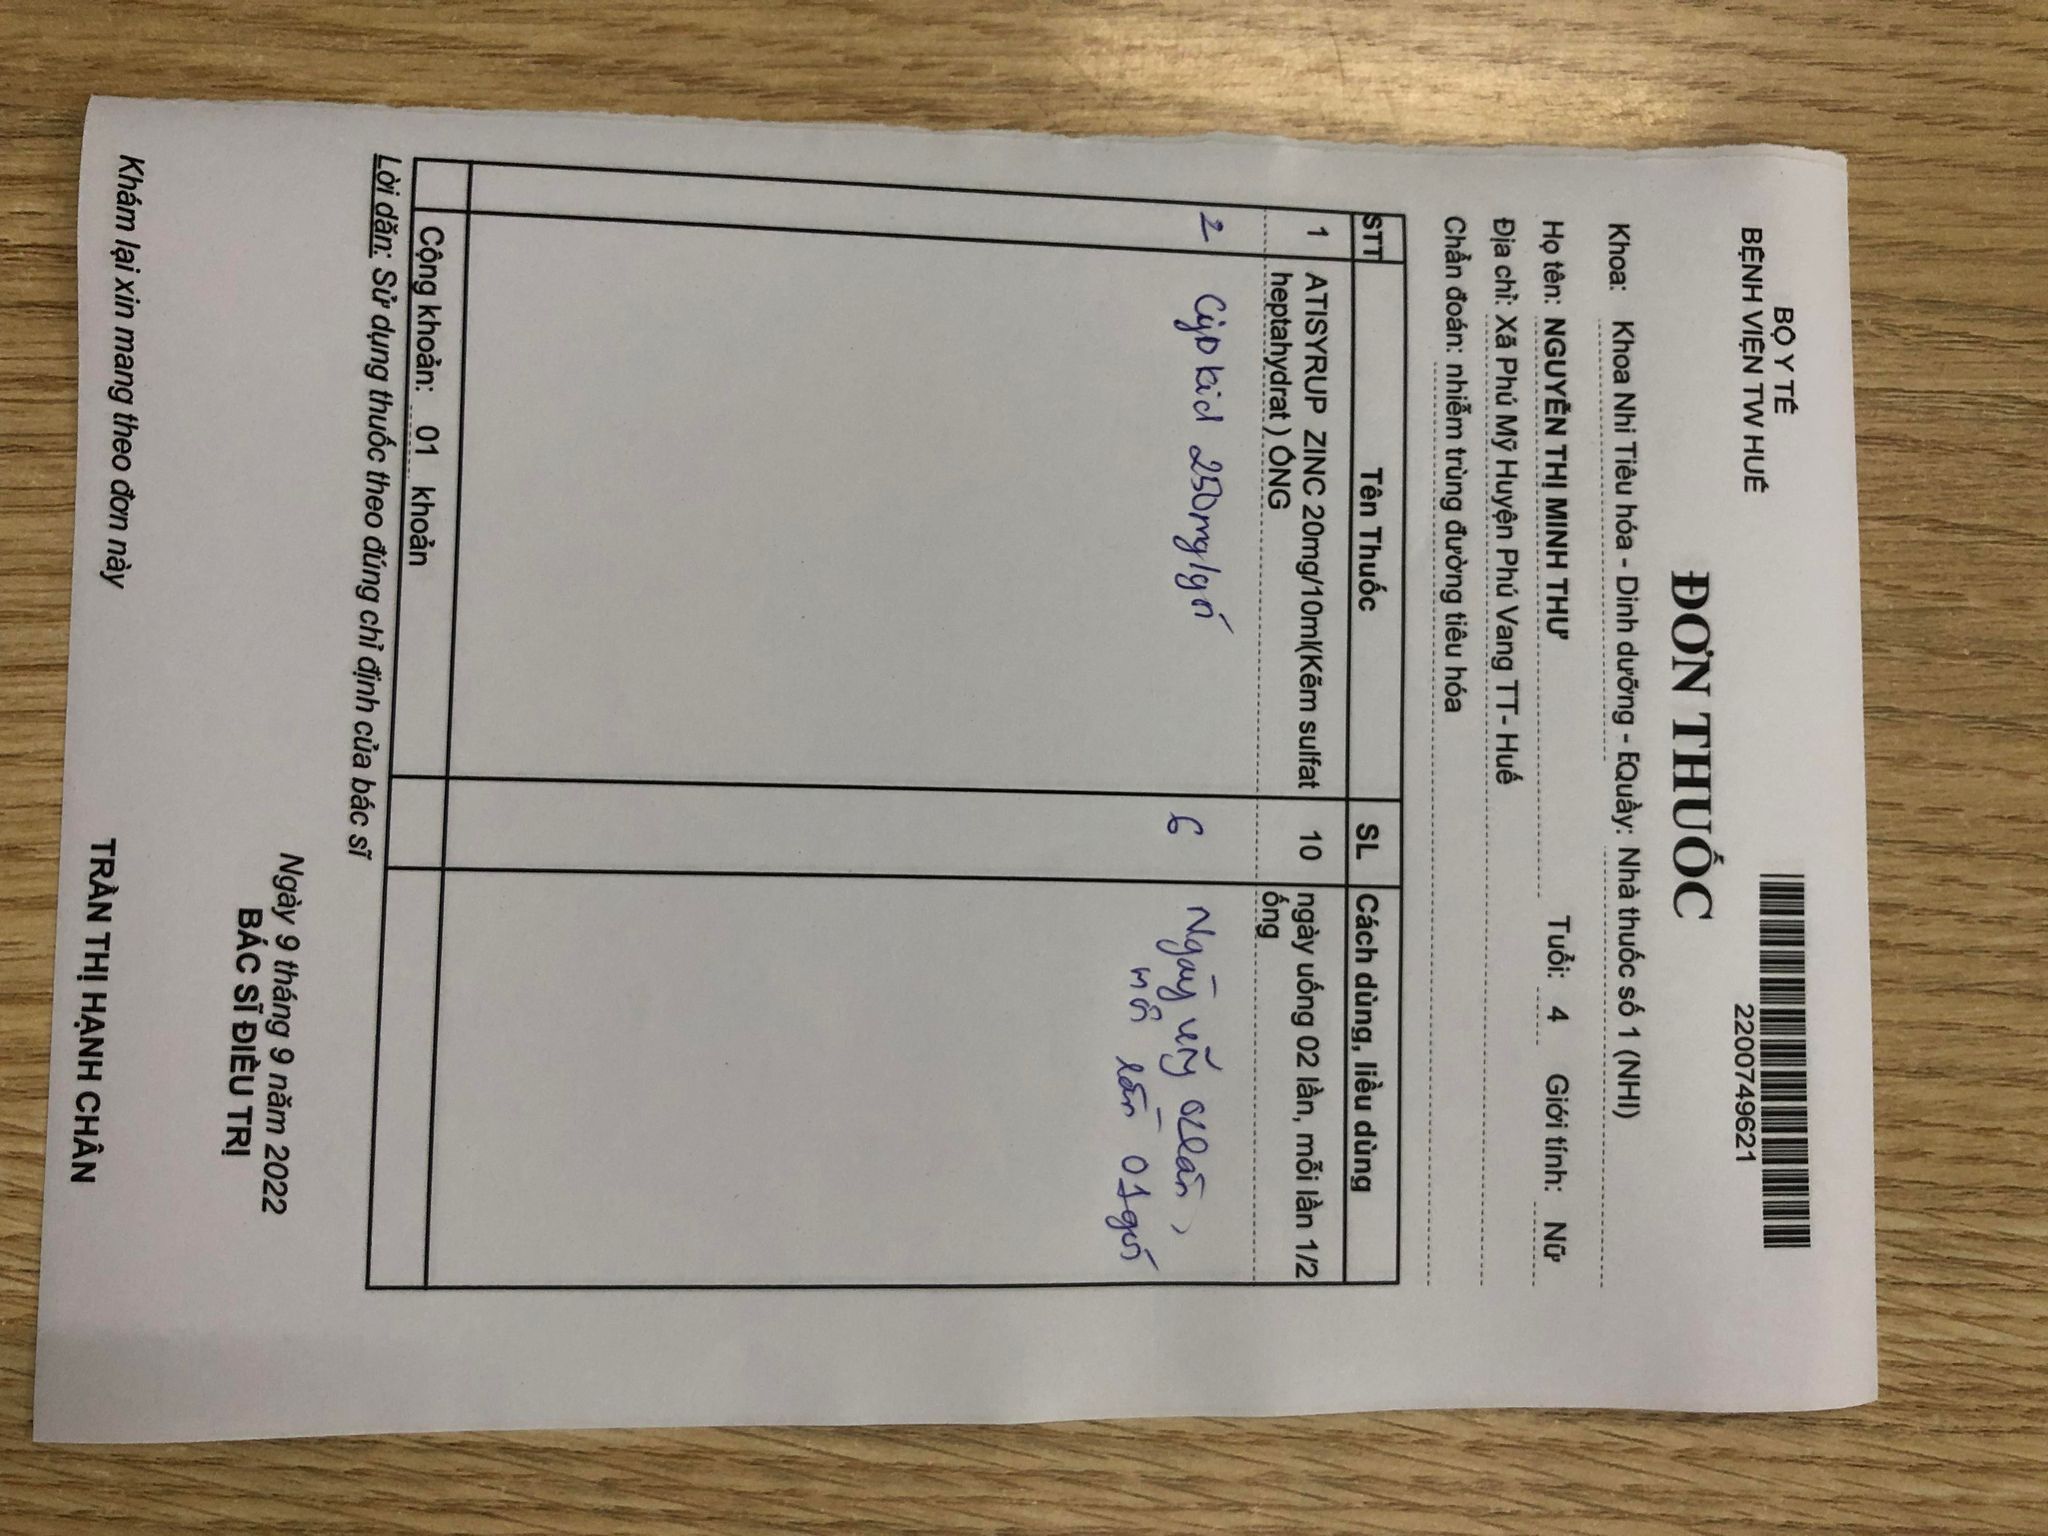 BỘ Y TẾ
BỆNH VIỆN TW HUẾ
2200749621
ĐƠN THUỐC
Khoa: Khoa Nhi Tiêu hóa - Dinh dưỡng - EQuầy: Nhà thuốc số 1 (NHI)
Họ tên: NGUYỄN THỊ MINH THƯ Tuổi: 4 Giới tính: Nữ
Địa chỉ: Xã Phú Mỹ Huyện Phú Vang TT- Huế
Chẩn đoán: nhiễm trùng đường tiêu hóa
STT Tên Thuốc SL Cách dùng, liều dùng
1 ATISYRUP ZINC 20mg/10ml(Kẽm sulfat 10 ngày uống 02 lần, mỗi lần 1/2
heptahydrat ) ỐNG ống
2 kid 250mg/gói 6 Ngày uống 02 lần,
mỗi lần 01 gói
Cộng khoản: 01 khoản
Lời dặn: Sử dụng thuốc theo đúng chỉ định của bác sĩ
Ngày 9 tháng 9 năm 2022
BÁC SĨ ĐIỀU TRỊ
Khám lại xin mang theo đơn này
TRẦN THỊ HẠNH CHÂN